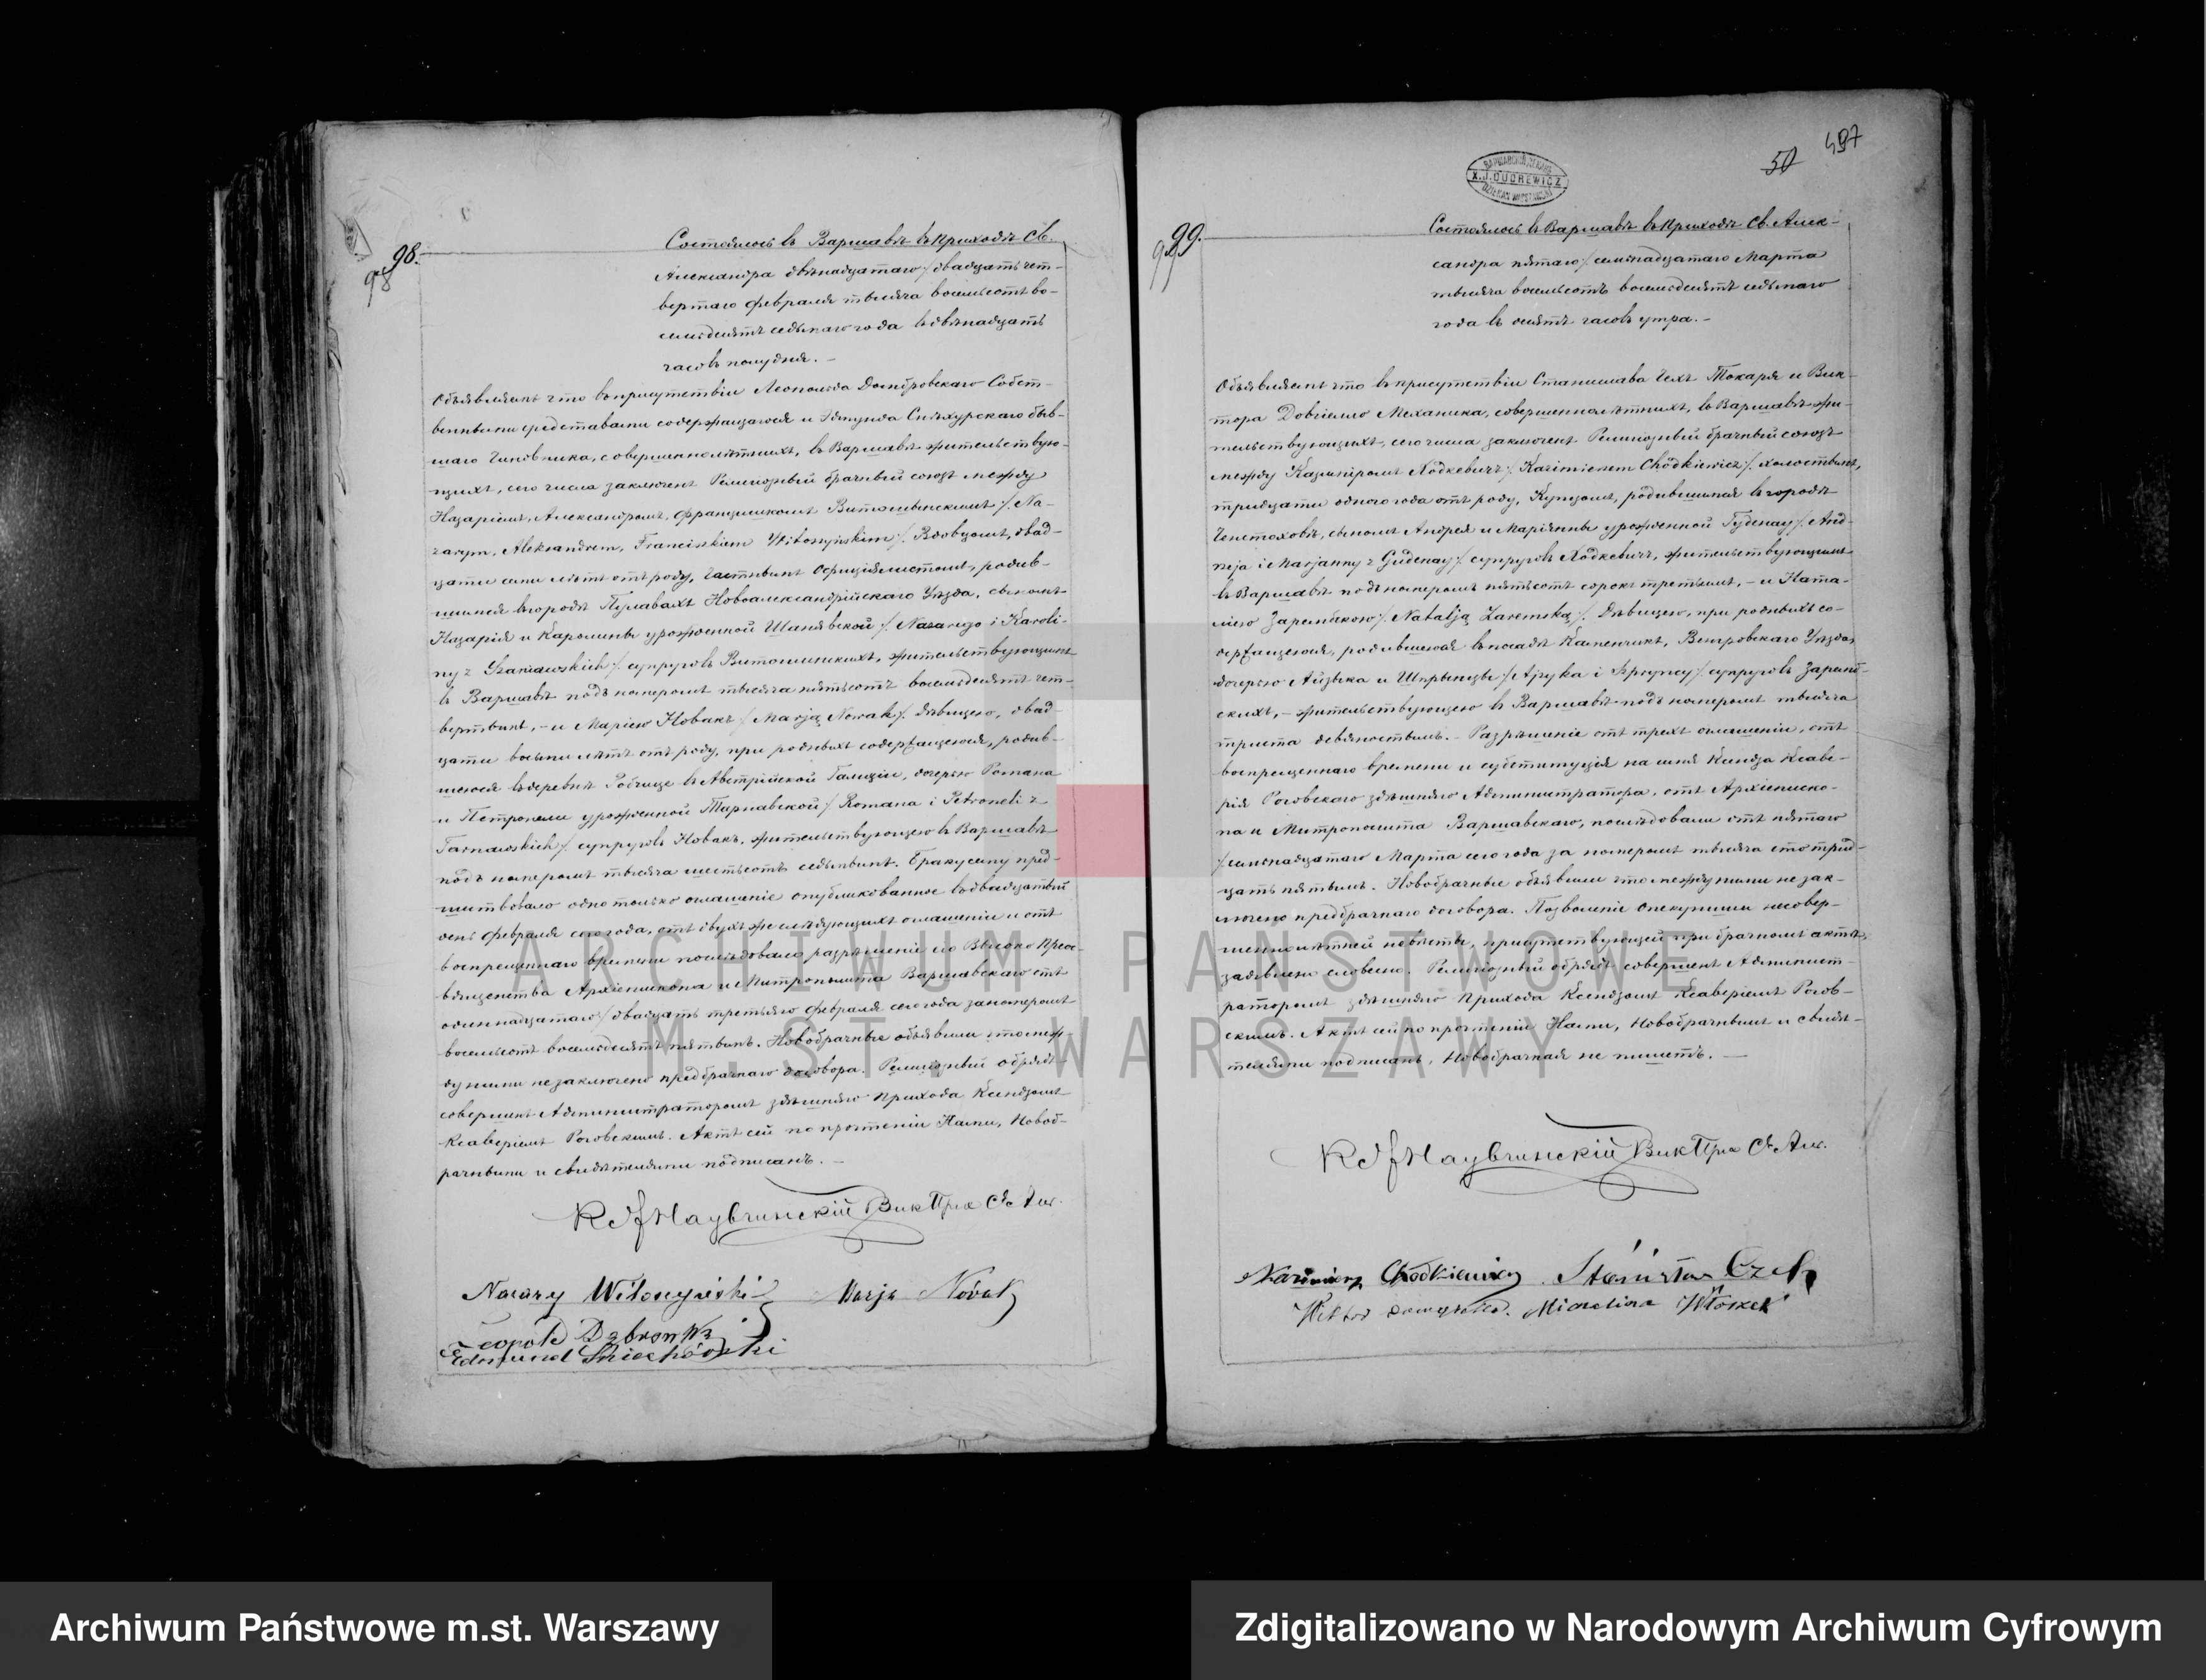 98.
98
Состоялось въ Варшавѣ въ Приходѣ Св.
Александра двѣнадцатаго /двадцать чет-
вертаго февраля тысяча восемьсотъ во-
семьдесятъ седьмаго года въ двѣнадцать
часовъ полудня. –
Объявляемъ что въ присутствіи Леопольда Домбровскаго Собст-
венными средствами содержащагося и Эдмунда Снѣхурскаго быв-
шаго Чиновника, совершеннолѣтнихъ, въ Варшавѣ жительствую-
щихъ, сего числа заключенъ Религіозный брачный союзъ между
Назаріемъ, Александромъ, Францишкомъ Витошинскимъ /. Na-
zarym, Aleksandrem, Franciszkiem Witoszyńskim /. Вдовцомъ, двад-
цати семи лѣтъ отъ роду, Частнымъ Оффиціялистомъ, родив-
шимся въ городѣ Пулавахъ Новоалександрійскаго Уѣзда, сыномъ
Назарія и Каролины урожденной Шанявской /. Nazarego i Karoli-
ny z Szaniawskich /. супруговъ Витошинскихъ, жительствующимъ
въ Варшавѣ подъ номеромъ тысяча пятьсотъ восемьдесятъ чет-
вертымъ, – и Маріею Новакъ / Marją Nowak /. дѣвицею, двад-
цати восьми лѣтъ отъ роду, при родныхъ содержащеюся, родив-
шеюся въ деревнѣ въ Австрійской Галиціи, дочерью Романа
и Петронели урожденной Тарнавской / Romana i Petroneli z
Tarnawskich /. супруговъ Новакъ, жительствующею въ Варшавѣ
подъ номеромъ тысяча шестьсотъ седьмымъ. Браку сему пред-
шествовало одно только оглашеніе опубликованное въ двадцатый
день февраля сего года, отъ двухъ же слѣдующихъ оглашеній и отъ
воспрещеннаго времени послѣдовало разрѣшеніе его Высоко Прео-
священства Архіепископа и Митрополита Варшавскаго отъ
одиннадцатаго /двадцать третьяго февраля сего года за номеромъ
восемьсотъ восемьдесятъ пятымъ. Новобрачные объявили что меж-
ду ними не заключено предбрачнаго договора. Религіозный обрядъ
совершенъ Администраторомъ здѣшняго Прихода Ксендзомъ
Ксаверіемъ Роговскимъ. Актъ сей по прочтеніи Нами, Новоб-
рачными и свидѣтелями подписанъ. –
Вик Пра Св Алк.
Nazary Witoszyński Marja Nowak
Leopold Dąbrowski
Edmund Śniechórski
497
50
X. J. DUDREWICZ
99.
99
Состоялось въ Варшавѣ въ Приходѣ Св. Алек-
сандра пятаго /семнадцатаго Марта
тысяча восемьсотъ восемьдесятъ седьмаго
года въ десять часовъ утра. –
Объявляемъ что въ присутствіи Станислава Чехъ Токаря и Вик-
тора Довгелло Механика, совершеннолѣтнихъ, въ Варшавѣ жи-
тельствующихъ, сего числа заключенъ Религіозный брачный союзъ
между Казиміромъ Ходкевичъ /. Kazimierzem Chodkiewicz /. холостымъ,
тридцати одного года отъ роду, Купцомъ, родившимся въ городѣ
Ченстоховѣ, сыномъ Андрея и Маріянны урожденной Гуденау /. And-
rzeja i Marjanny z Gudenau /. супруговъ Ходкевичъ, жительствующимъ
въ Варшавѣ подъ номеромъ пятьсотъ сорокъ третьимъ, – и Ната-
ліею Зарембскою /. Natalją Zarembską /. дѣвицею, при родныхъ со-
держащеюся, родившеюся въ посадѣ Каменчикъ, Венгровскаго Уѣзда,
дочерью Айзыка и Шпрынцы / Ajzyka i Szpryncy /. супруговъ Заремб-
скихъ, – жительствующею въ Варшавѣ подъ номеромъ тысяча
триста девяностымъ. – Разрѣшеніе отъ трехъ оглашеній, отъ
воспрещеннаго времени и субституція на имя Ксендза Ксаве-
рія Роговскаго здѣшняго Администратора, отъ Архіеписко-
па и Митрополита Варшавскаго, послѣдовали отъ пятаго
/.семнадцатаго Марта сего года за номеромъ тысяча сто трид-
цать пятымъ. Новобрачные объявили что между ними не зак-
лючено предбрачнаго договора. Позволеніе опекунши несовер-
шеннолѣтней невѣсты, присутствующей при брачномъ актѣ,
заявлено словесно. Религіозный обрядъ совершенъ Админист-
раторомъ здѣшняго Прихода Ксендзомъ Ксаверіемъ Рогов-
скимъ. Актъ сей по прочтеніи Нами, Новобрачнымъ и свидѣ-
телями подписанъ, Новобрачная не пишетъ. –
Вик Пра Св Алк.
Kazimierz Chodkiewicz Stanisław Czech
Wiktor Dowgiełło. Michalina
ARCHIWUM PAŃSTWOWE
M.ST. WARSZAWY
Archiwum Państwowe m.st. Warszawy
Zdigitalizowano w Narodowym Archiwum Cyfrowym